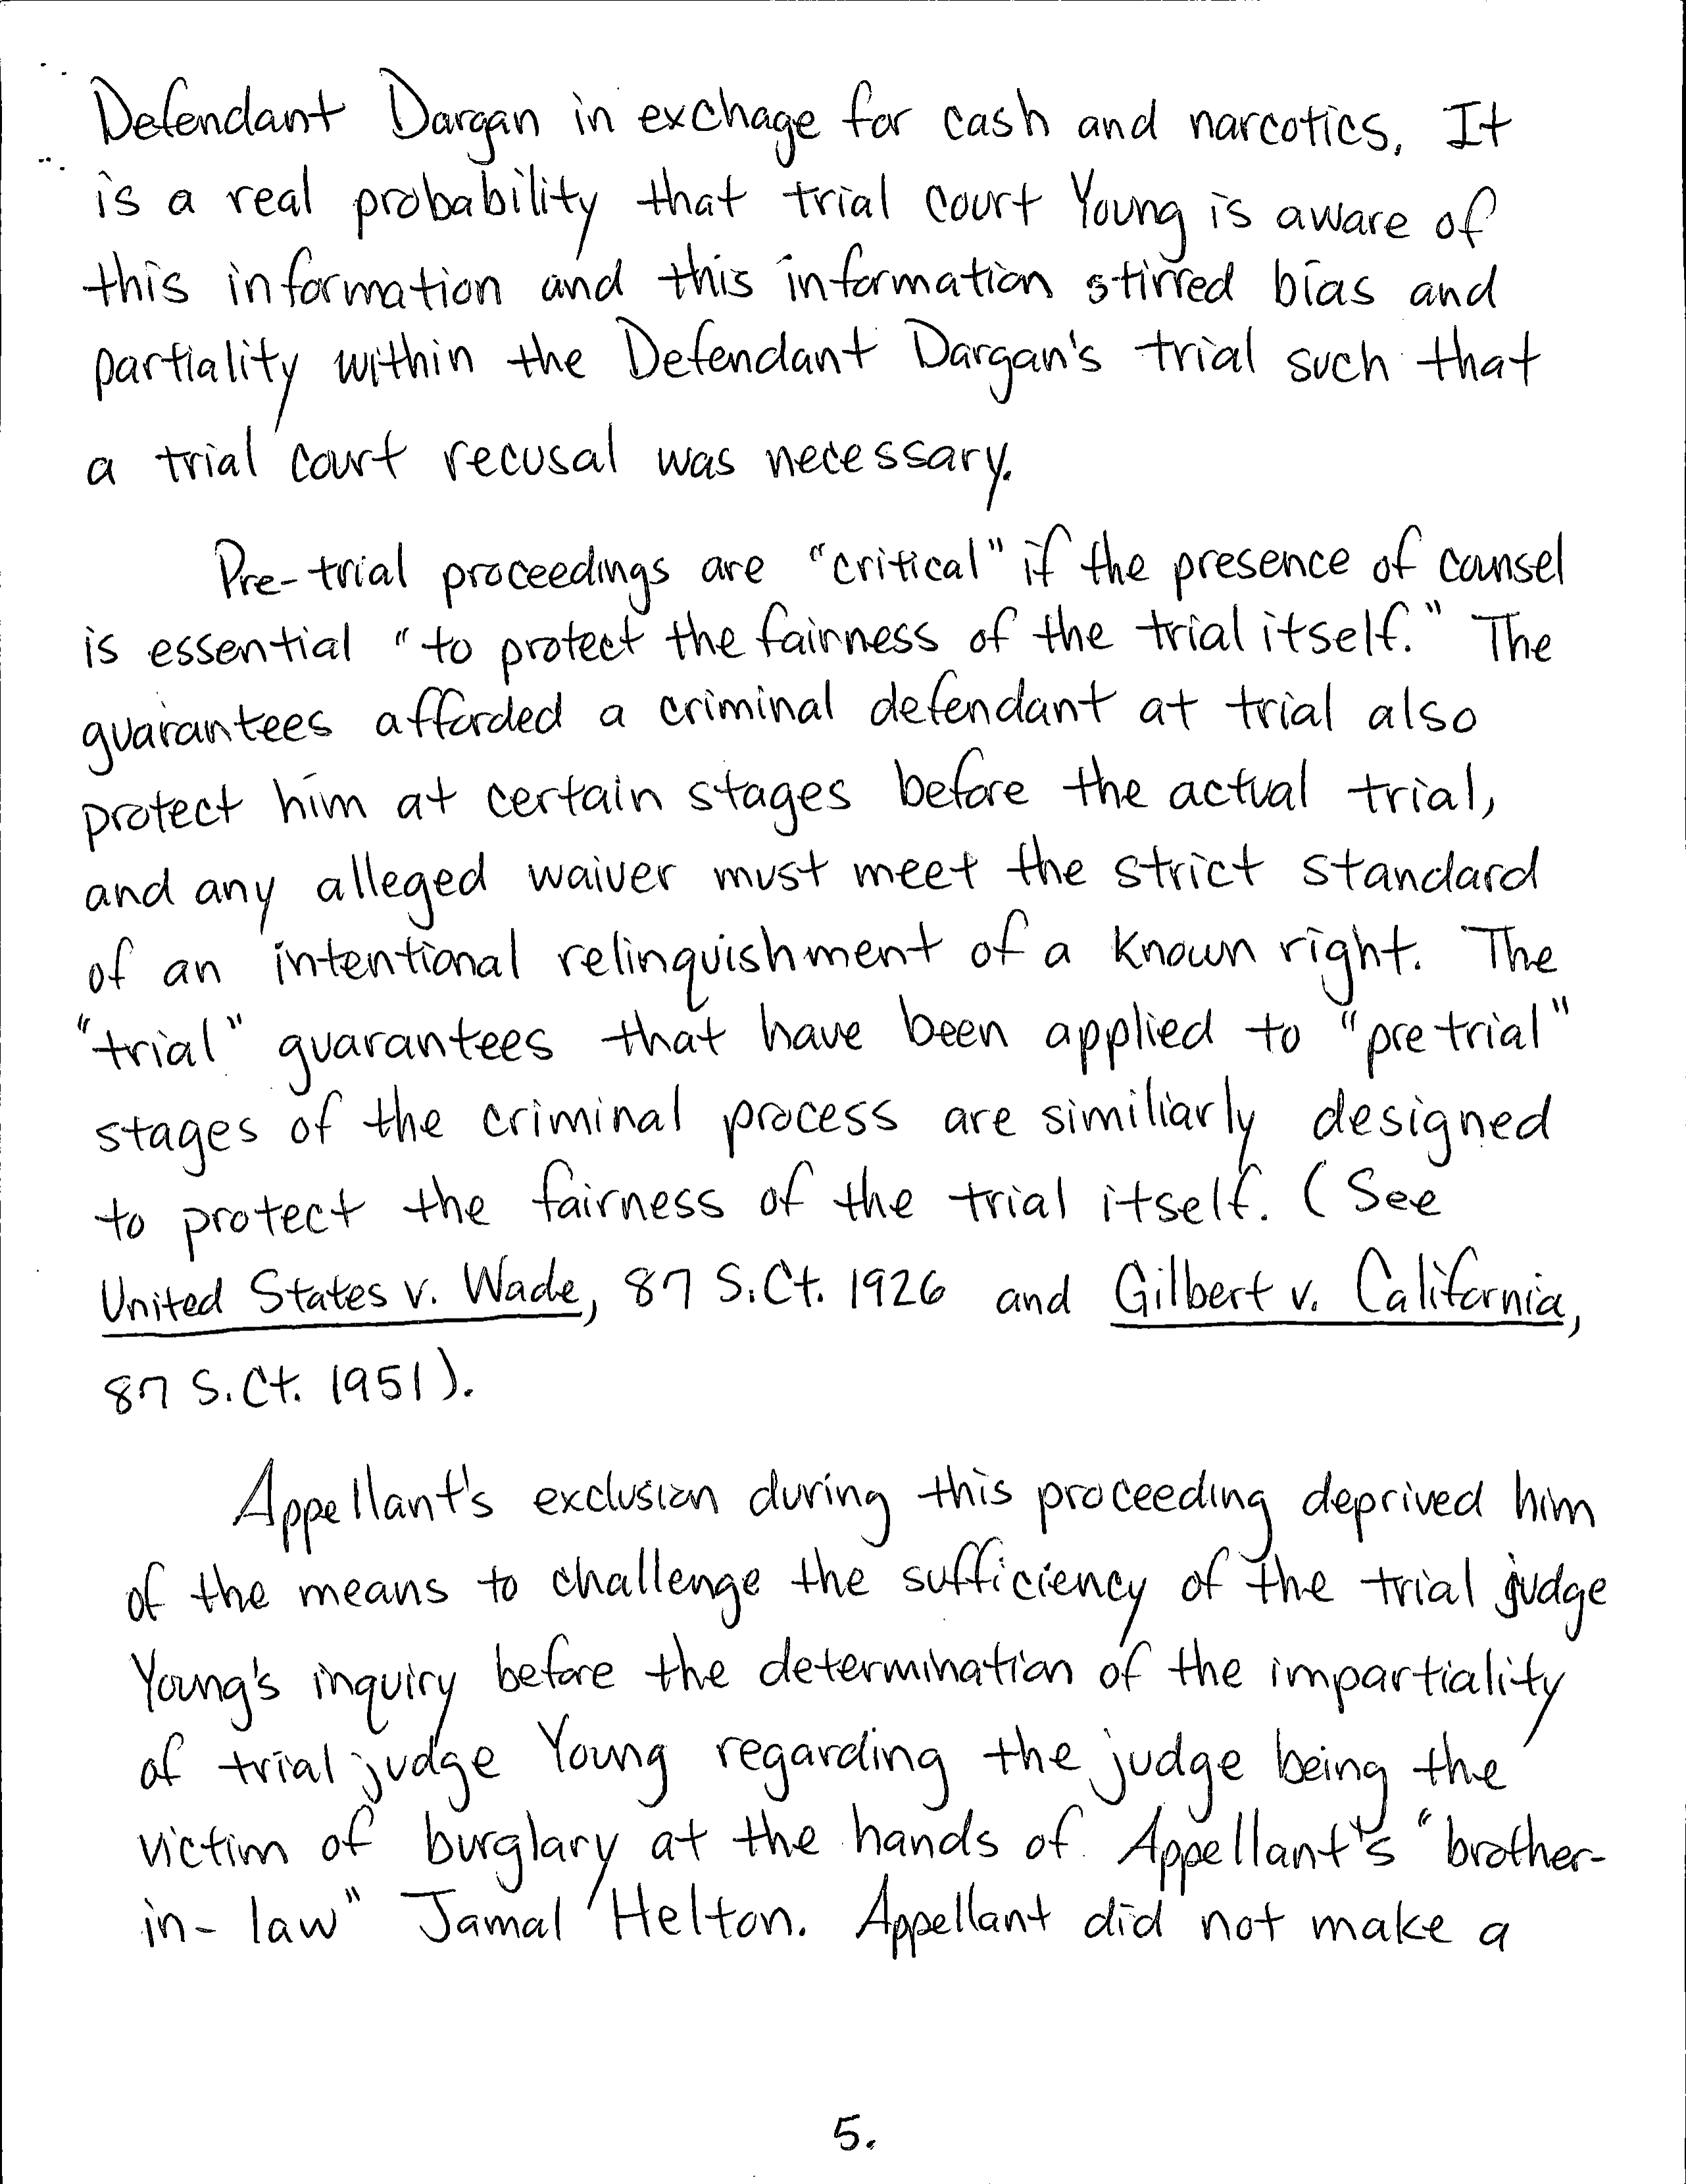 Defendant Dargan in exchage for cash and narcotics. It
is a real probability that trial court Young is aware of
this information and this information stirred bias and
partiality within the Defendant Dargan's trial such that
a trial court recusal was necessary.
Pre-trial proceedings are "critical" if the presence of counsel
is essential "to protect the fairness of the trial itself." The
guarantees afforded a criminal defendant at trial also
protect him at certain stages before the actual trial,
and any alleged waiver must meet the strict standard
of an intentional relinquishment of a known right. The
"trial" guarantees that have been applied to "pretrial"
stages of the criminal process are similiarly designed
to protect the fairness of the trial itself. (See
United States v. Wade, 87 S.Ct. 1926 and Gilbert v. California,
87 S.Ct. 1951).
Appellant's exclusion during this proceeding deprived him
of the means to challenge the sufficiency of the trial judge
Young's inquiry before the determination of the impartiality
of trial judge Young regarding the judge being the
victim of burglary at the hands of Appellant's "brother-
in-law" Jamal Helton. Appellant did not make a
5.